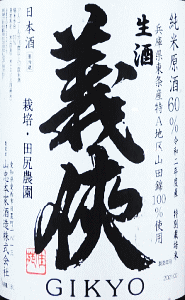 純米原酒60%
令和二年度産 特別栽培米
兵庫県東条産特A地区山田錦100%使用
生酒
義侠
日本酒
栽培・田尻農園
山忠本家酒造株式会社
GIKYO